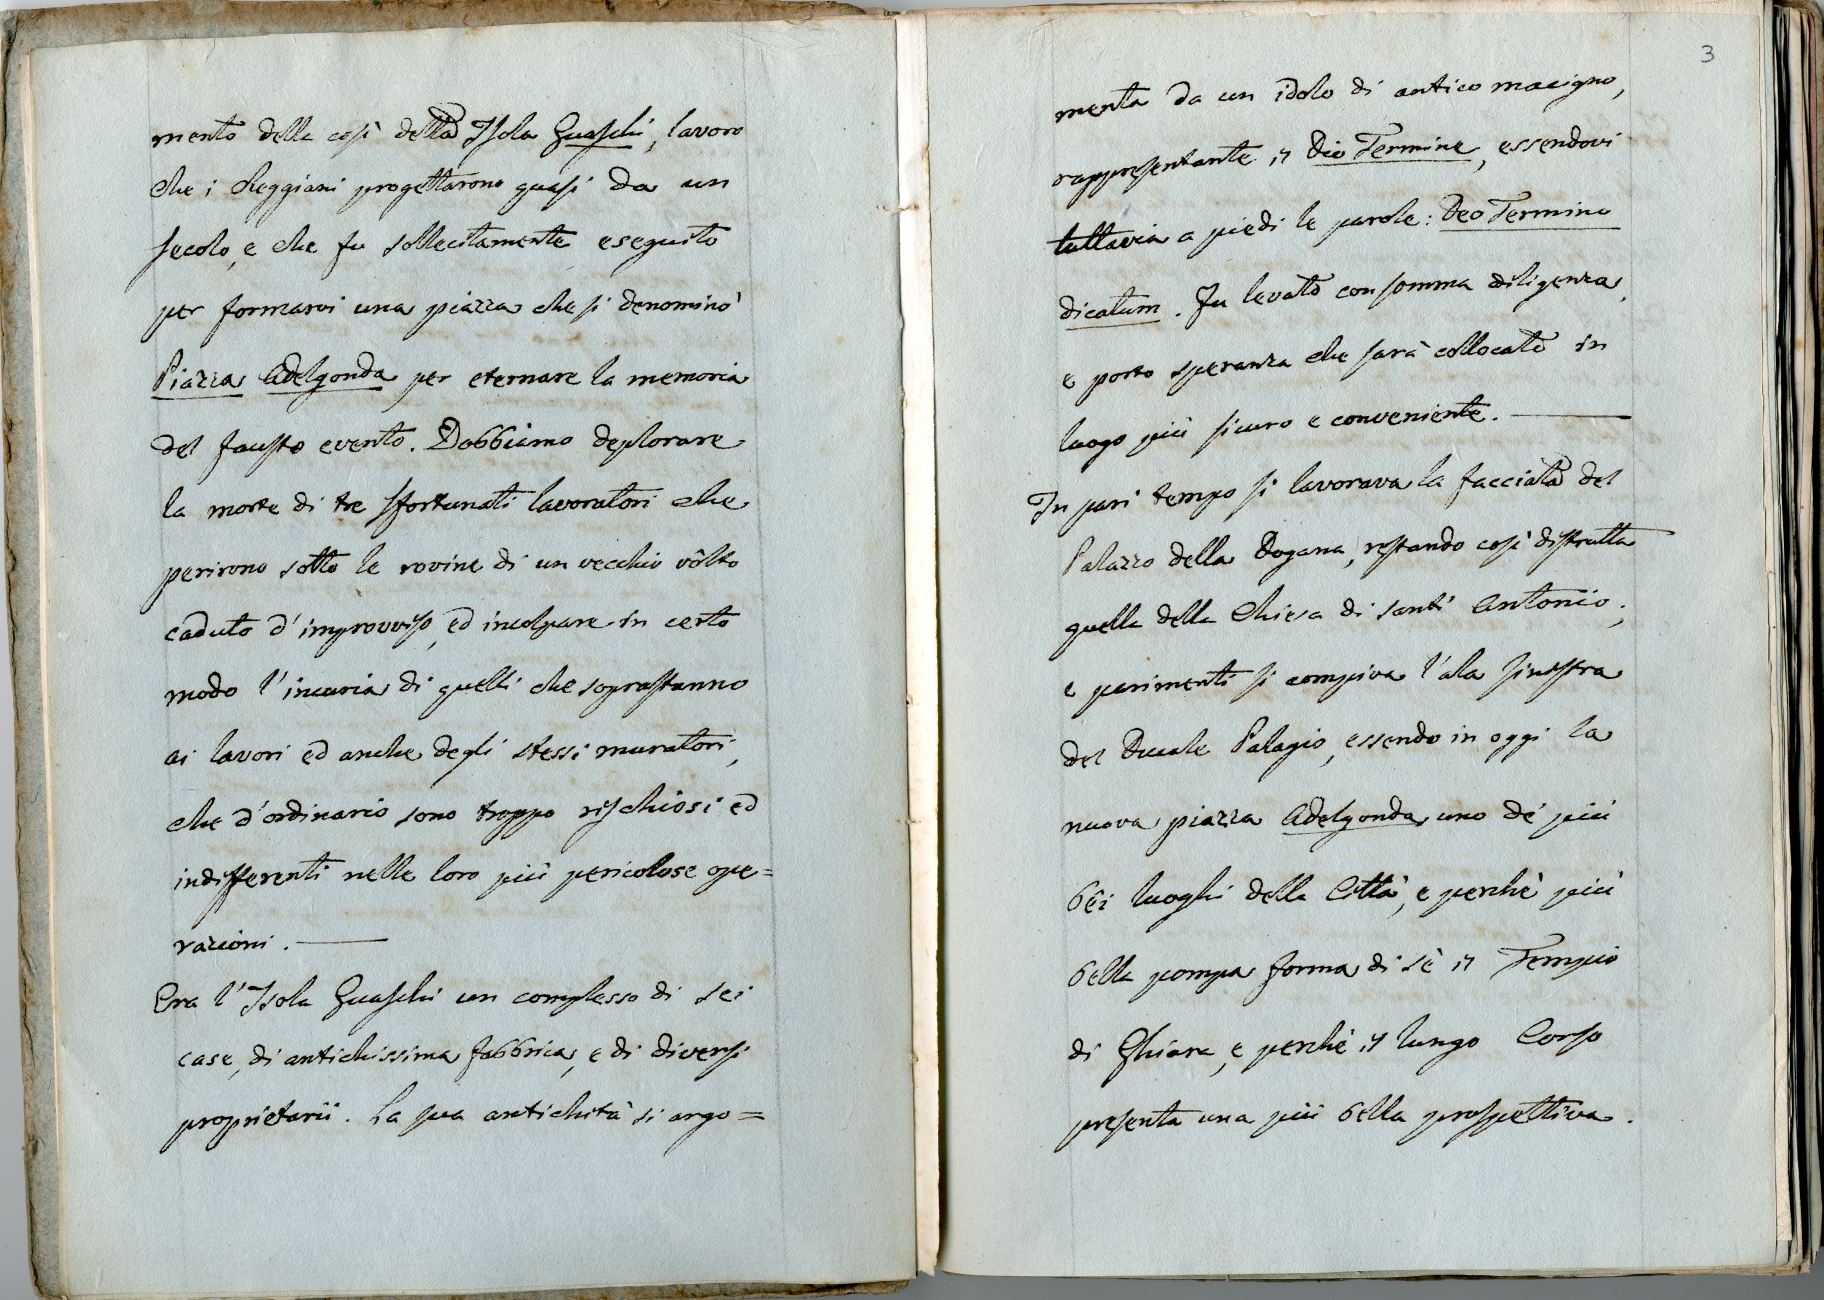 mento della così detta Isola Guaschi, lavoro
che i Reggiani progettarono quasi da un
secolo, e che fu sollecitamente eseguito
per formarvi una piazza che si denominò
Piazza Adelgonda per eternare la memoria
del fausto evento. Dobbiamo deplorare
la morte di tre sfortunati lavoratori che
perirono sotto le rovine di un vecchio vôlto
caduto d'improvviso, ed incolpare in certo
modo l'incuria di quelli che soprastanno
ai lavori ed anche degli stessi muratori,
che d'ordinario sono troppo rischiosi ed
indifferenti nelle loro più pericolose ope=
razioni.
Era l'Isola Guaschi un complesso di sei
case, di antichissima fabbrica, e di diversi
proprietarii. La sua antichità si argo=
3
menta da un idolo di antico macigno,
rappresentante il Dio Termine, essendovi
tuttavia a piedi le parole: Deo Termino
dicatum. Fu levato con somma diligenza,
e porto speranza che sarà collocato in
luogo più sicuro e conveniente.
In pari tempo si lavorava la facciata del
Palazzo della Dogana, restando così distrutta
quella della Chiesa di Sant'Antonio;
e parimenti si compiva l'ala sinistra
del Ducale Palagio, essendo in oggi la
nuova piazza Adelgonda uno de' più
bêi luoghi della Città, e perchè più
bella pompa forma di sè il Tempio
di Ghiara, e perchè il lungo Corso
presenta una più bella prospettiva.